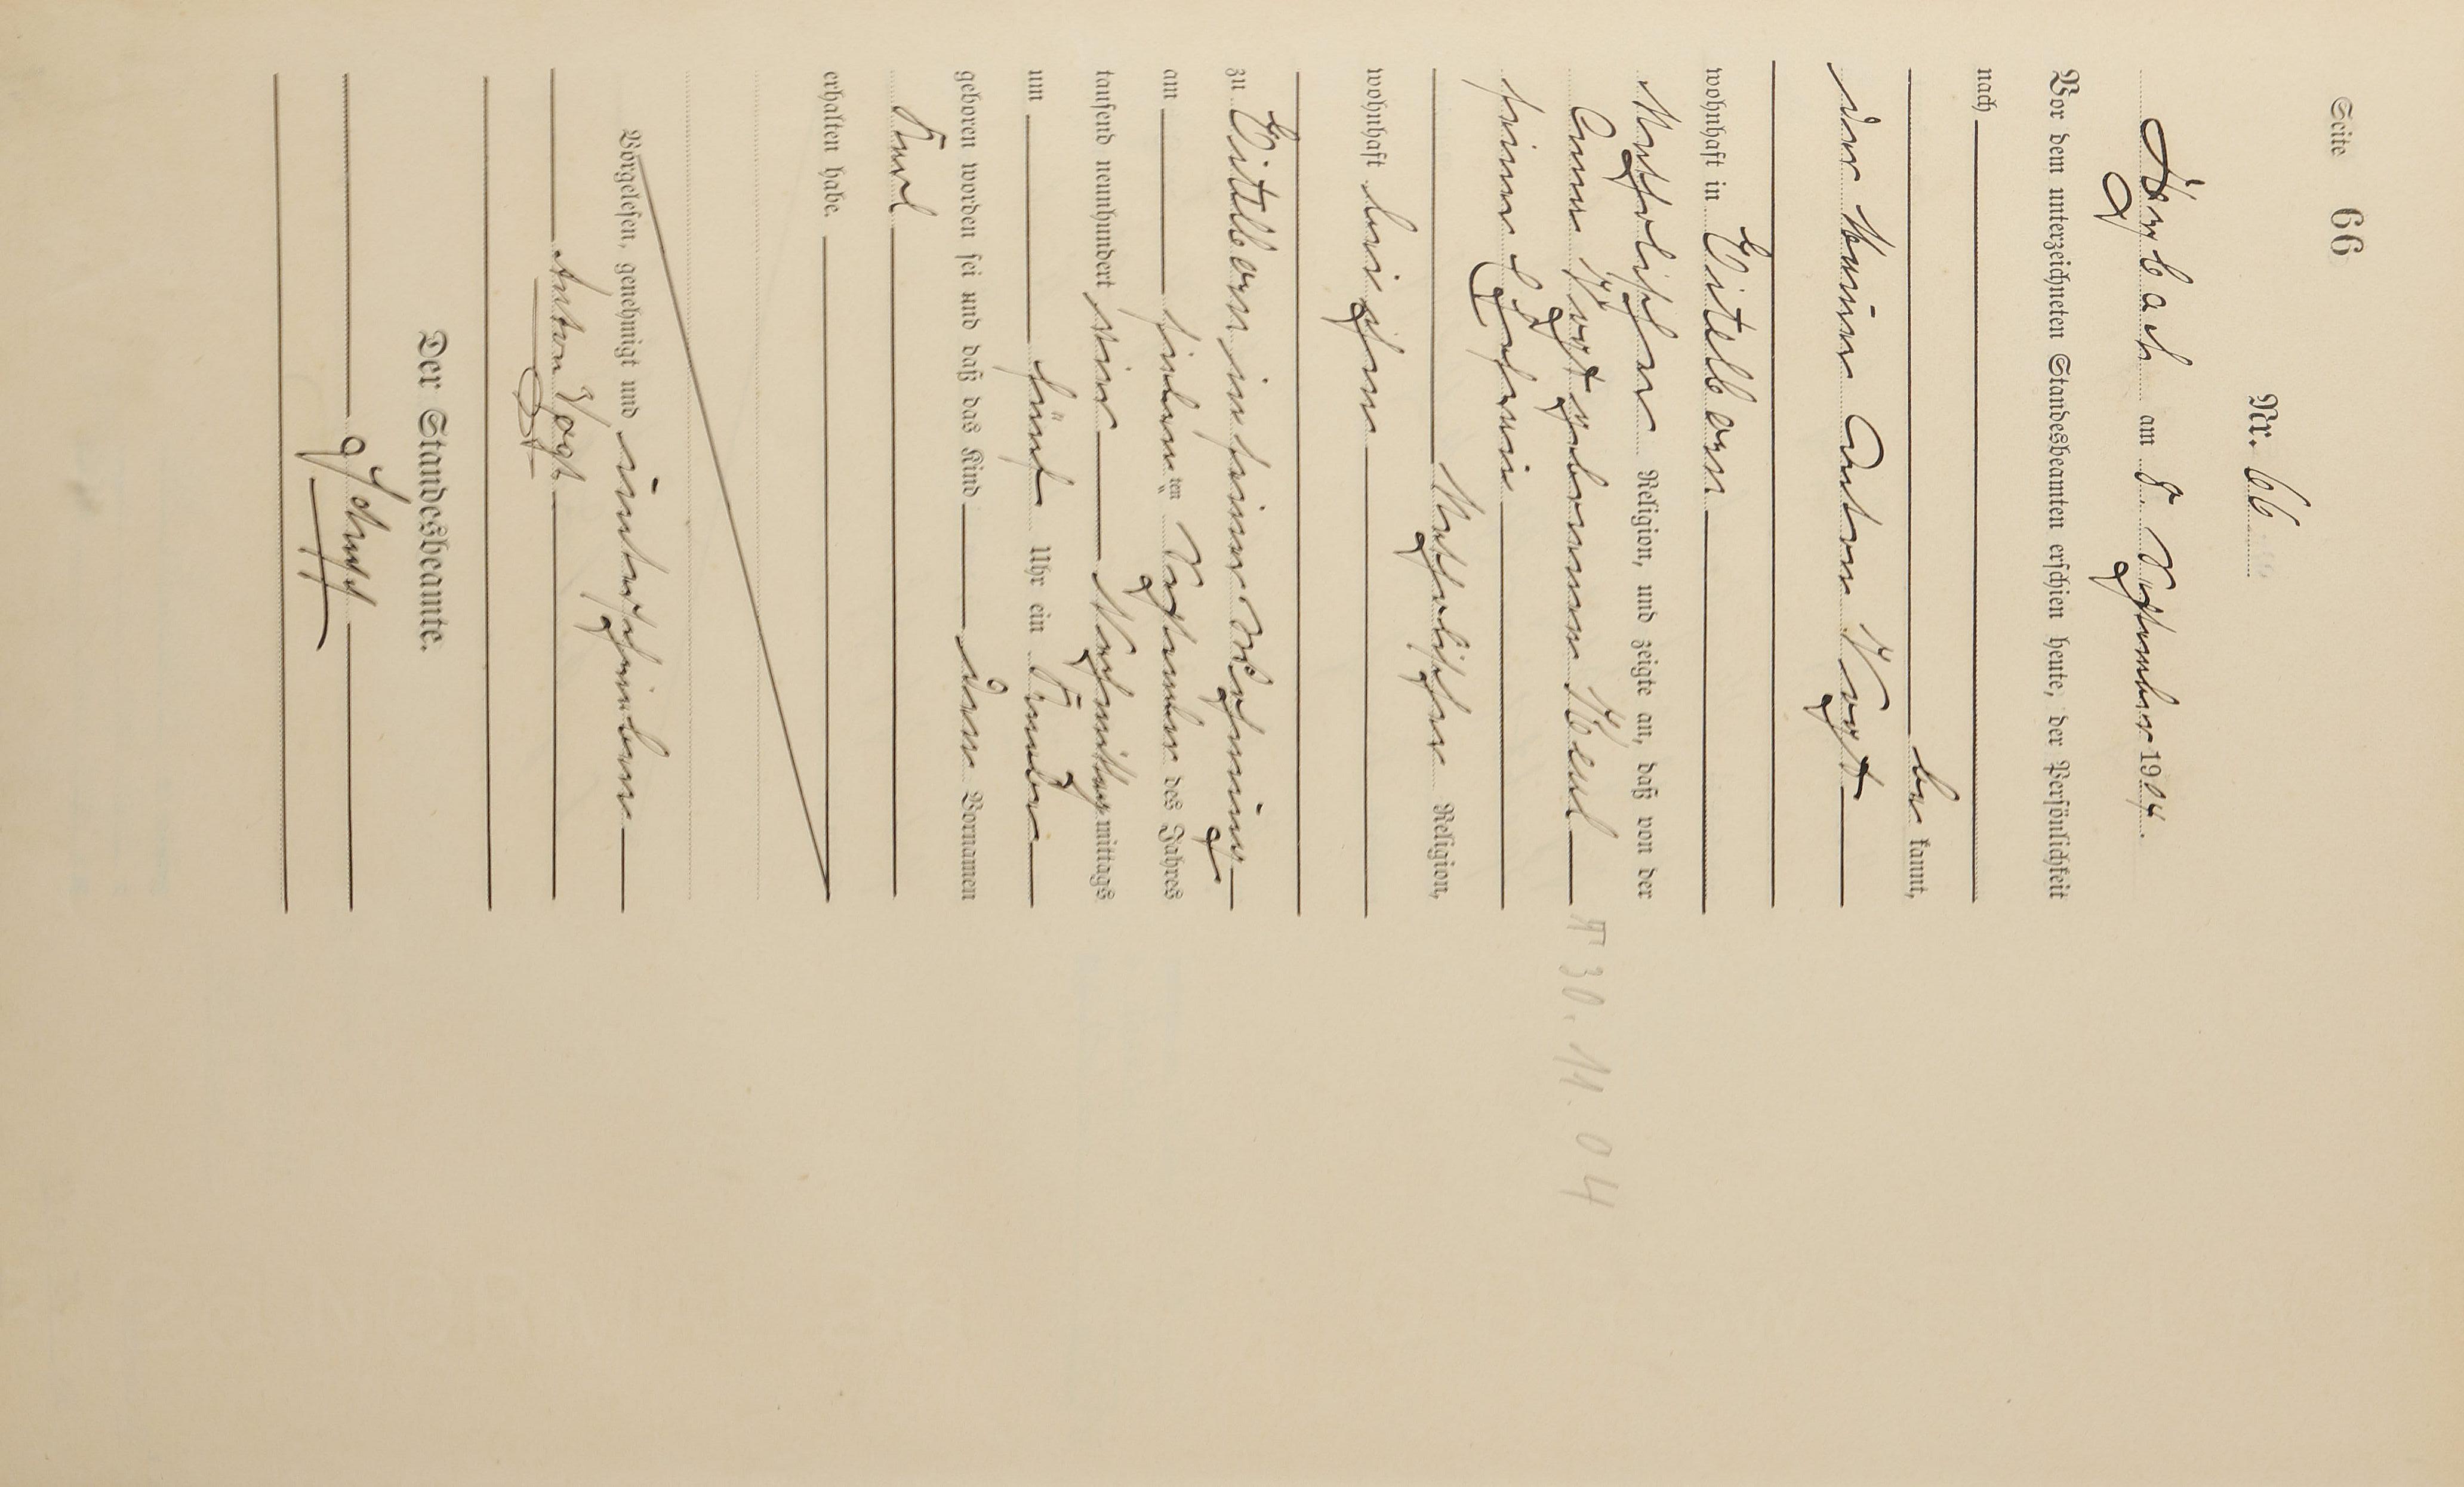 Seite 66
Nr. 66
Arzbach am 8. September 1904.
Vor dem unterzeichneten Standesbeamten erschien heute, der Persönlichkeit
nach
be kannt,
der Anton Vogt
wohnhaft in Eitelborn
katholischer Religion, und zeigte an, daß von der
Anna Vogt geborenen
seiner Ehefrau
† 30. 11. 04
katholischer Religion,
wohnhaft bei ihm
zu Eitelborn in seiner Wohnung
am siebenten September des Jahres
tausend neunhundert vier Nachmittags mittags
um fünf Uhr ein Knabe
geboren worden sei und daß das Kind den Vornamen
Karl
erhalten habe.
Vorgelesen, genehmigt und unterschrieben
Anton Vogt
Der Standesbeamte.